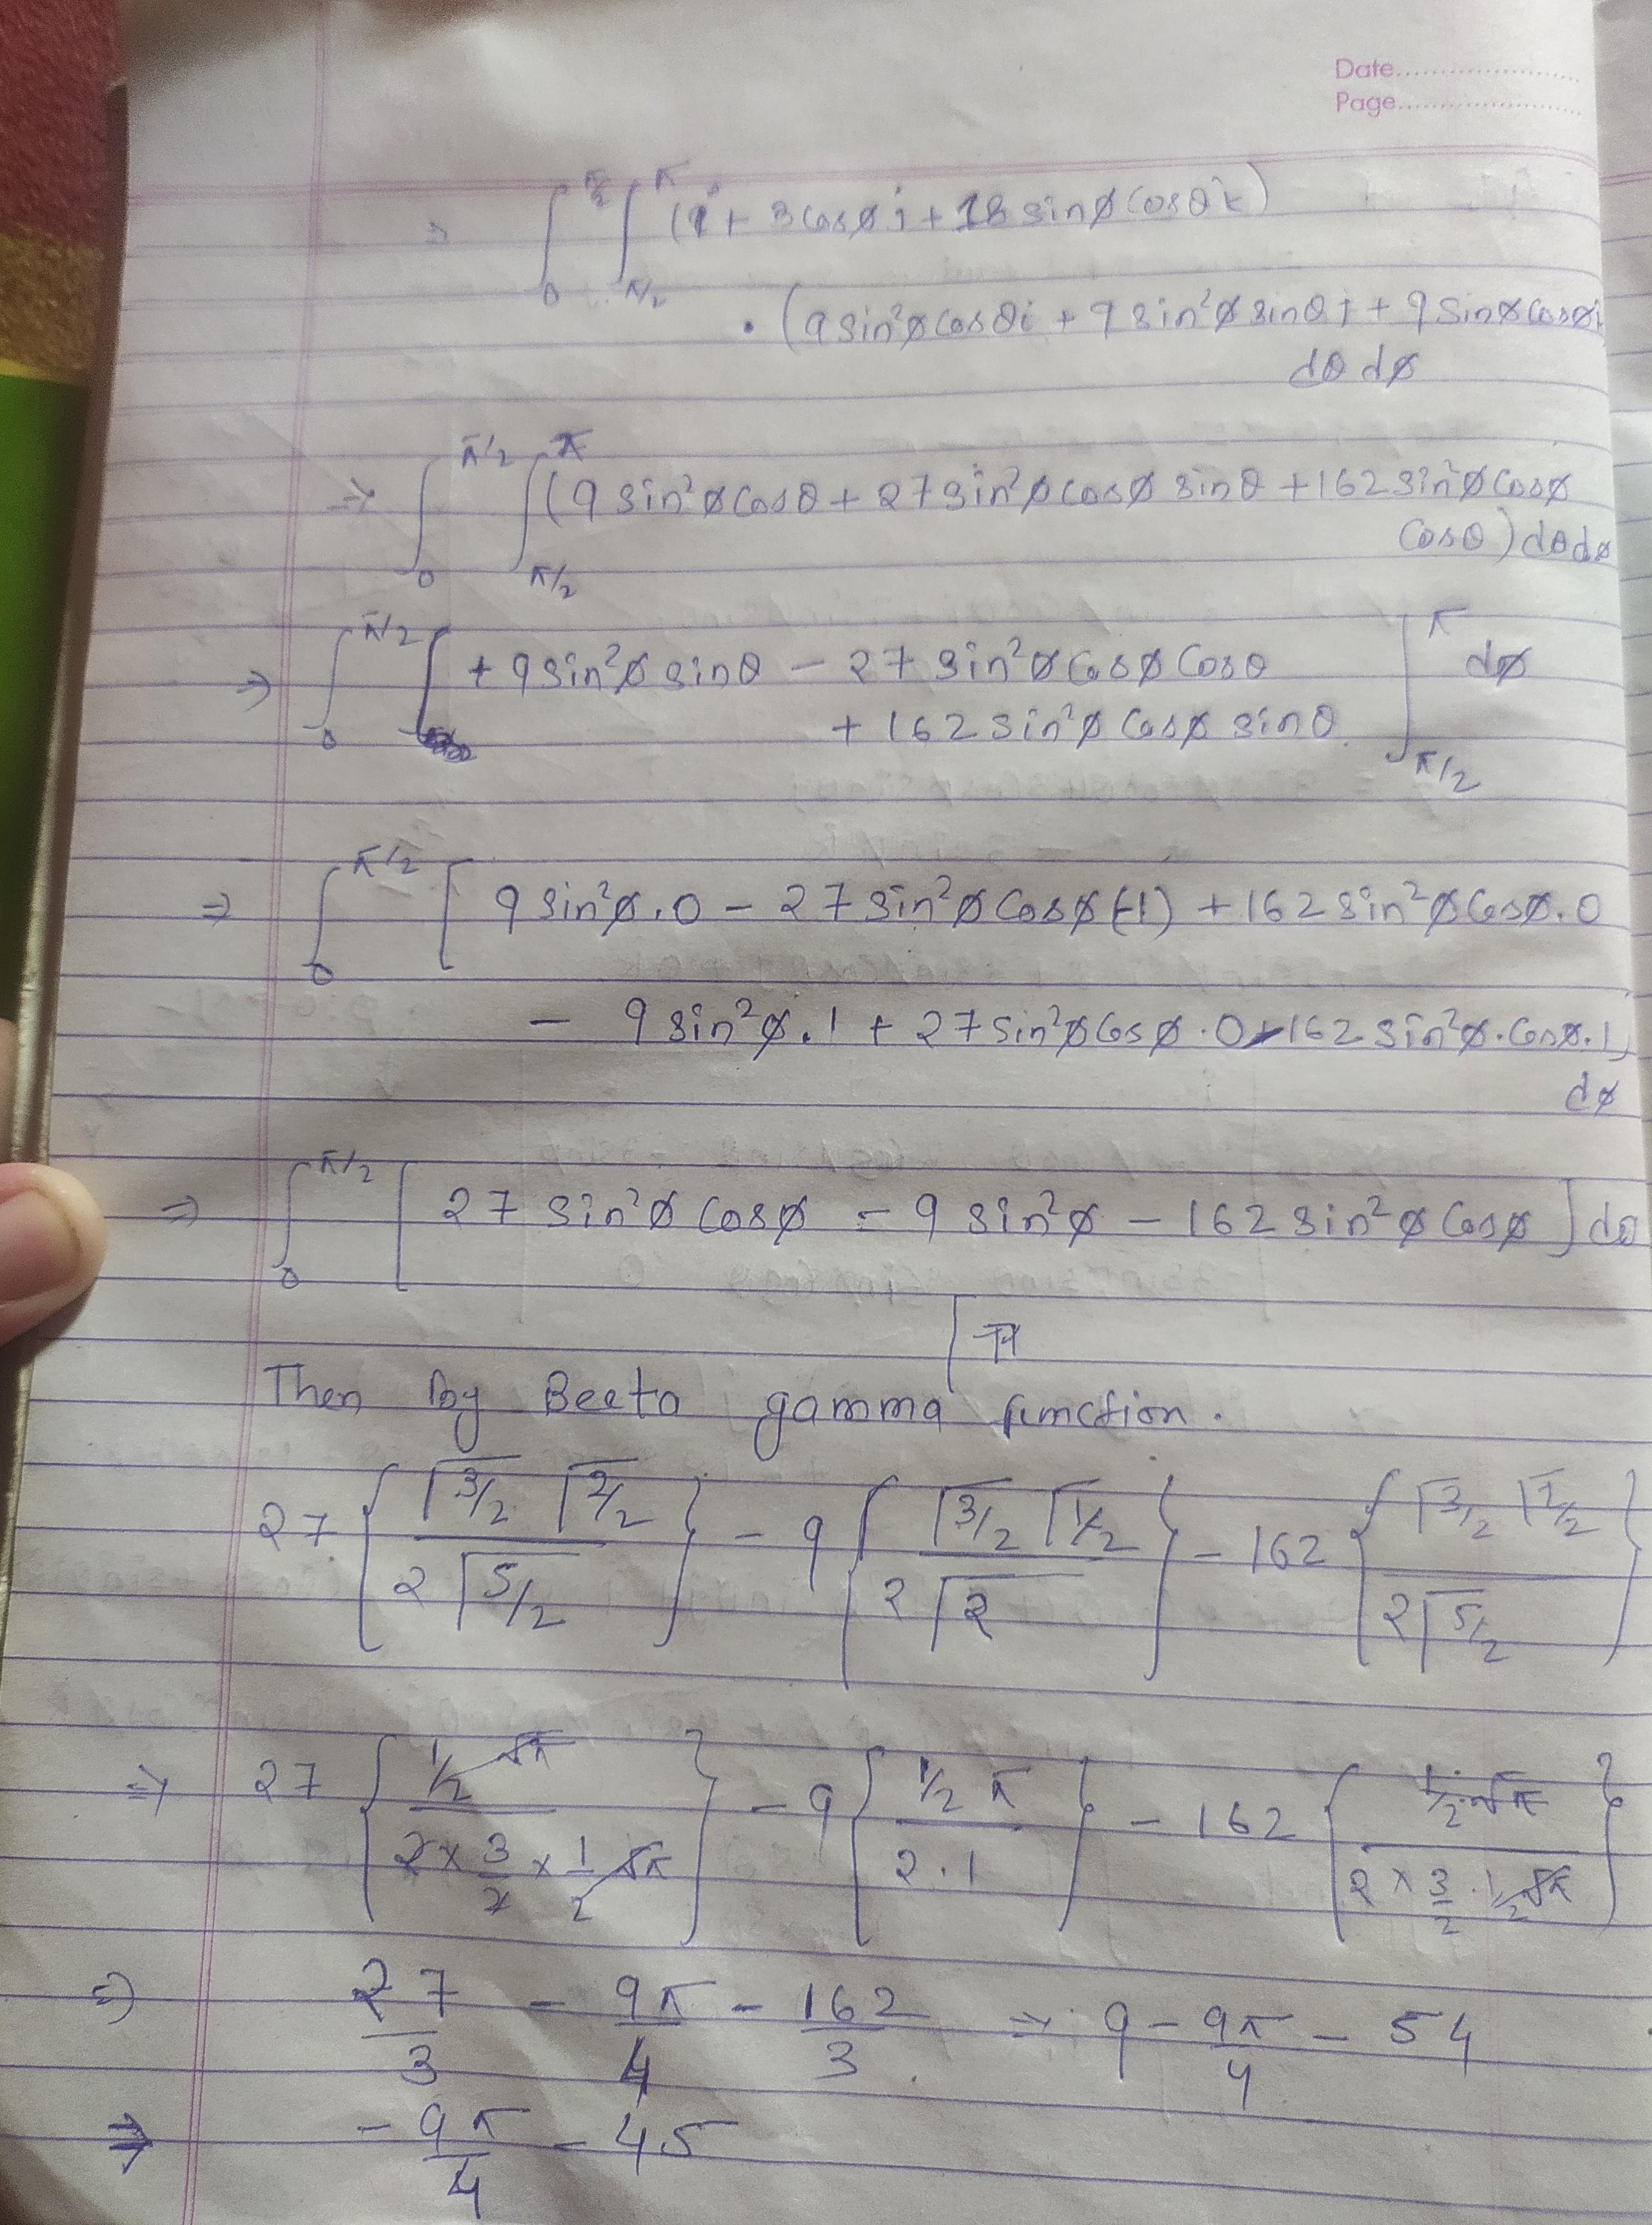 Date
Page
⇒ ∫₀^{π/2} ∫_{π/2}^{π} (i + 3cosφ j + 18 sinφ cosθ k)
· (9sin²φ cosθ i + 9 sin²φ sinθ j + 9 sinφ cosφ
dθ dφ
⇒ ∫₀^{π/2} ∫_{π/2}^{π} (9 sin²φ cosθ + 27 sin²φ cosφ sinθ + 162 sin²φ cosφ
cosθ) dθ dφ
⇒ ∫₀^{π/2} [ + 9 sin²φ sinθ − 27 sin²φ cosφ cosθ
+ 162 sin²φ cosφ sinθ |_{π/2}^{π} dφ
⇒ ∫₀^{π/2} [ 9 sin²φ . 0 − 27 sin²φ cosφ (-1) + 162 sin²φ cosφ . 0
− 9 sin²φ . 1 + 27 sin²φ cosφ · 0 - 162 sin²φ · cosφ . 1
dφ
⇒ ∫₀^{π/2} [ 27 sin²φ cosφ − 9 sin²φ − 162 sin²φ cosφ ] dφ
Then by Beeta gamma function .
27 { Γ3/2 Γ2/2 / 2 Γ5/2 } − 9 { Γ3/2 Γ1/2 / 2 Γ2 } − 162 { Γ3/2 Γ2/2 / 2 Γ5/2 }
⇒ 27 { 1/2 √π / 2 × 3/2 × 1/2 √π } − 9 { 1/2 π / 2 . 1 } − 162 { 1/2 · √π / 2 × 3/2 · 1/2 √π }
⇒ 27/3 − 9π/4 − 162/3 ⇒ 9 − 9π/4 − 54
⇒ − 9π/4 − 45